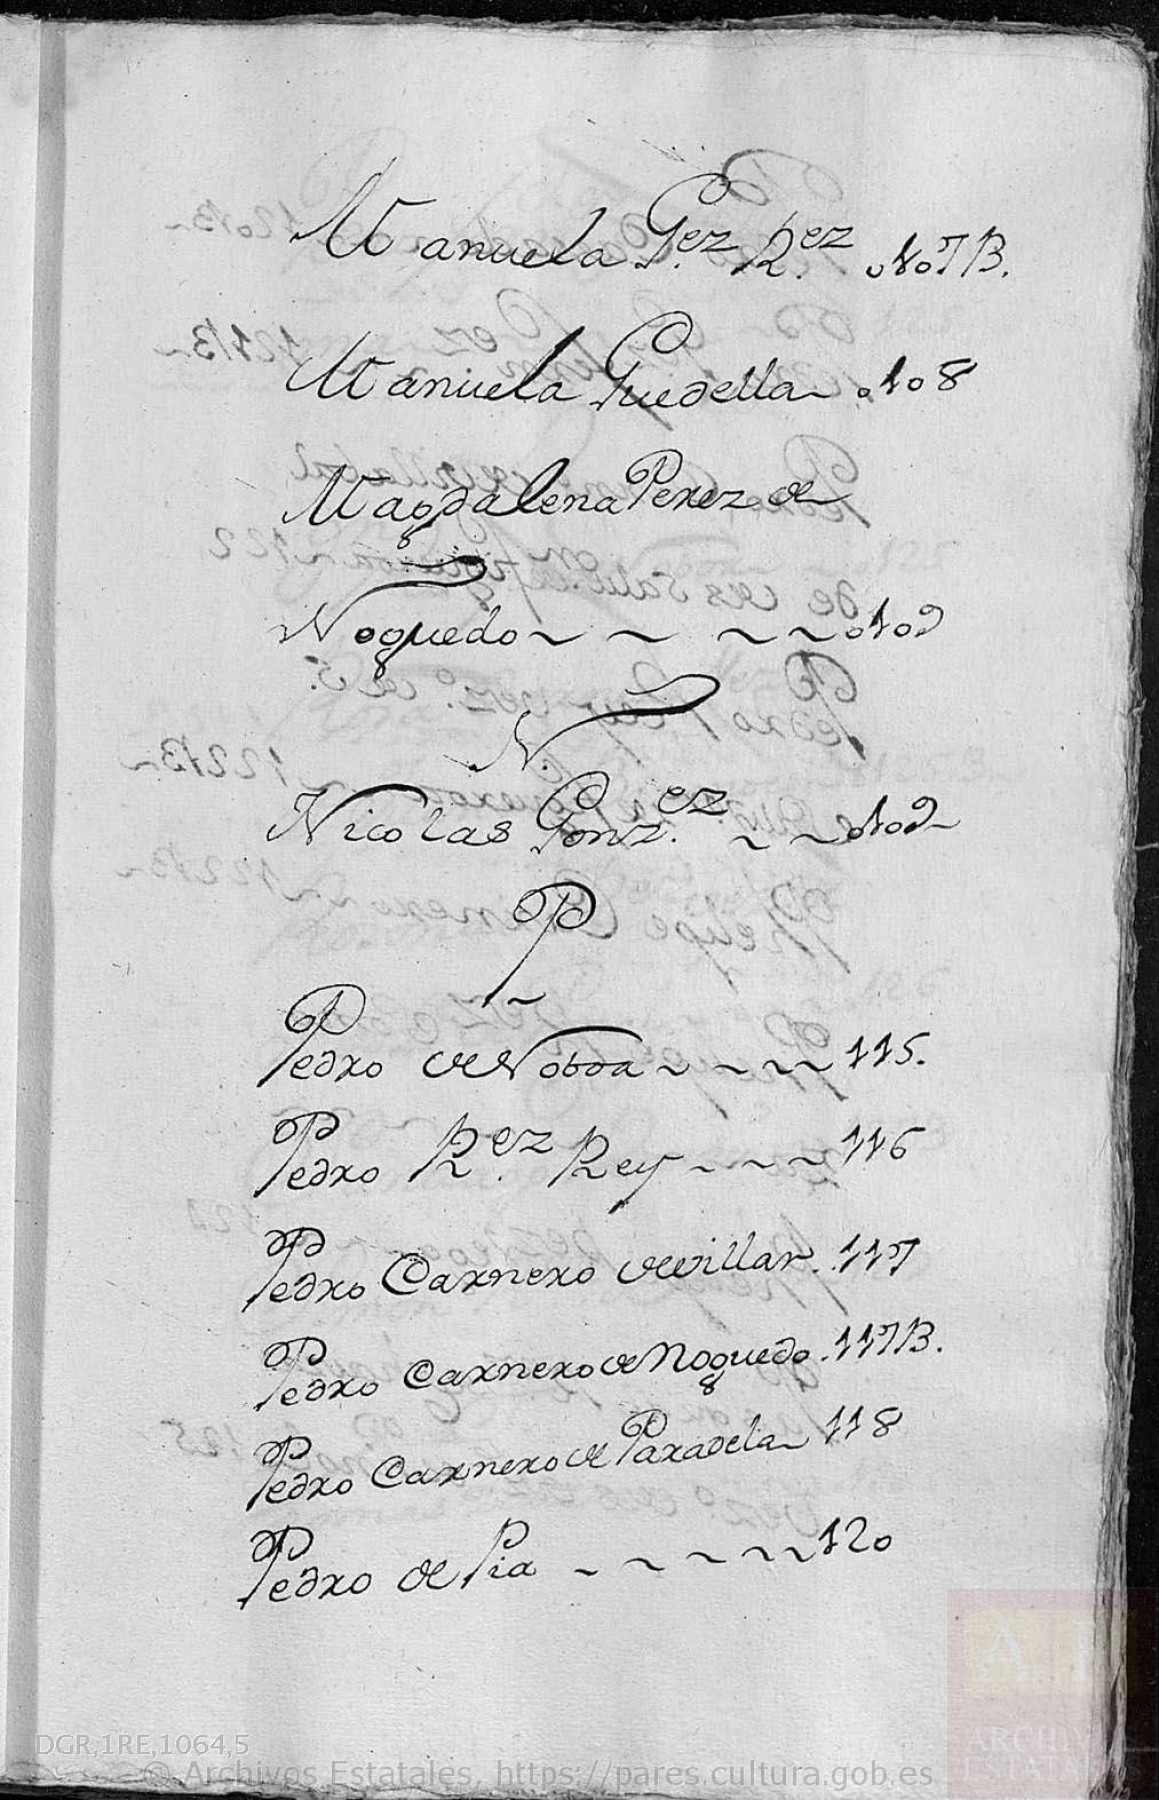 Manuela G.ez R.ez 107B.
Manuela Guedella 108
Magdalena Perez de
Noguedo ~ ~ ~ ~ 109
N.
Nicolas Gonz.ez ~ ~ 109
P
Pedro de Noboa ~ ~ ~ ~ 115.
Pedro R.ez Rey ~ ~ ~ 116
Pedro Carnero de villar. 117
Pedro Carnero de Noguedo. 117B.
Pedro Carnero de Paradela 118
Pedro de Pia ~ ~ ~ ~ ~ 120
DGR,1RE,1064,5
© Archivos Estatales, https://pares.cultura.gob.es